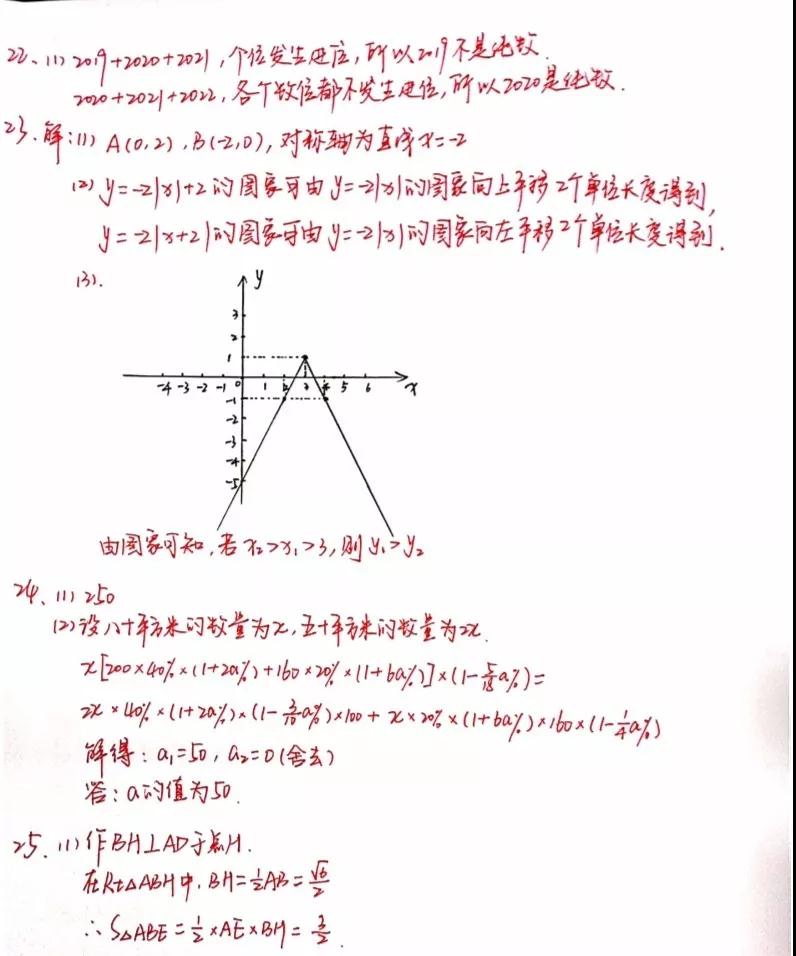 22、(1) 2019+2020+2021，个位发生进位，所以2019不是纯数.
2020+2021+2022，各个数位都不发生进位，所以2020是纯数.
23、解：(1) A(0,2)，B(-2,0)，对称轴为直线x=-2
(2) y=-2|x|+2的图象可由y=-2|x|的图象向上平移2个单位长度得到，
y=-2|x+2|的图象可由y=-2|x|的图象向左平移2个单位长度得到.
(3).
y
3
2
1
-4 -3 -2 -1 0 1 2 3 4 5 6 x
-1
-2
-3
-4
-5
由图象可知，若x₂>x₁>3，则y₁>y₂
24、(1) 250
(2) 设八十平方米的数量为x，五十平方米的数量为2x.
x[200×40%×(1+2a%)+160×20%×(1+6a%)]×(1-5/18a%)=
2x×40%×(1+2a%)×(1-3/10a%)×100+x×20%×(1+6a%)×160×(1-1/4a%)
解得：a₁=50，a₂=0(舍去)
答：a的值为50.
25、(1) 作BH⊥AD于点H.
在Rt△ABH中，BH=1/2AB=√6/2
∴S△ABE=1/2×AE×BH=3/2.